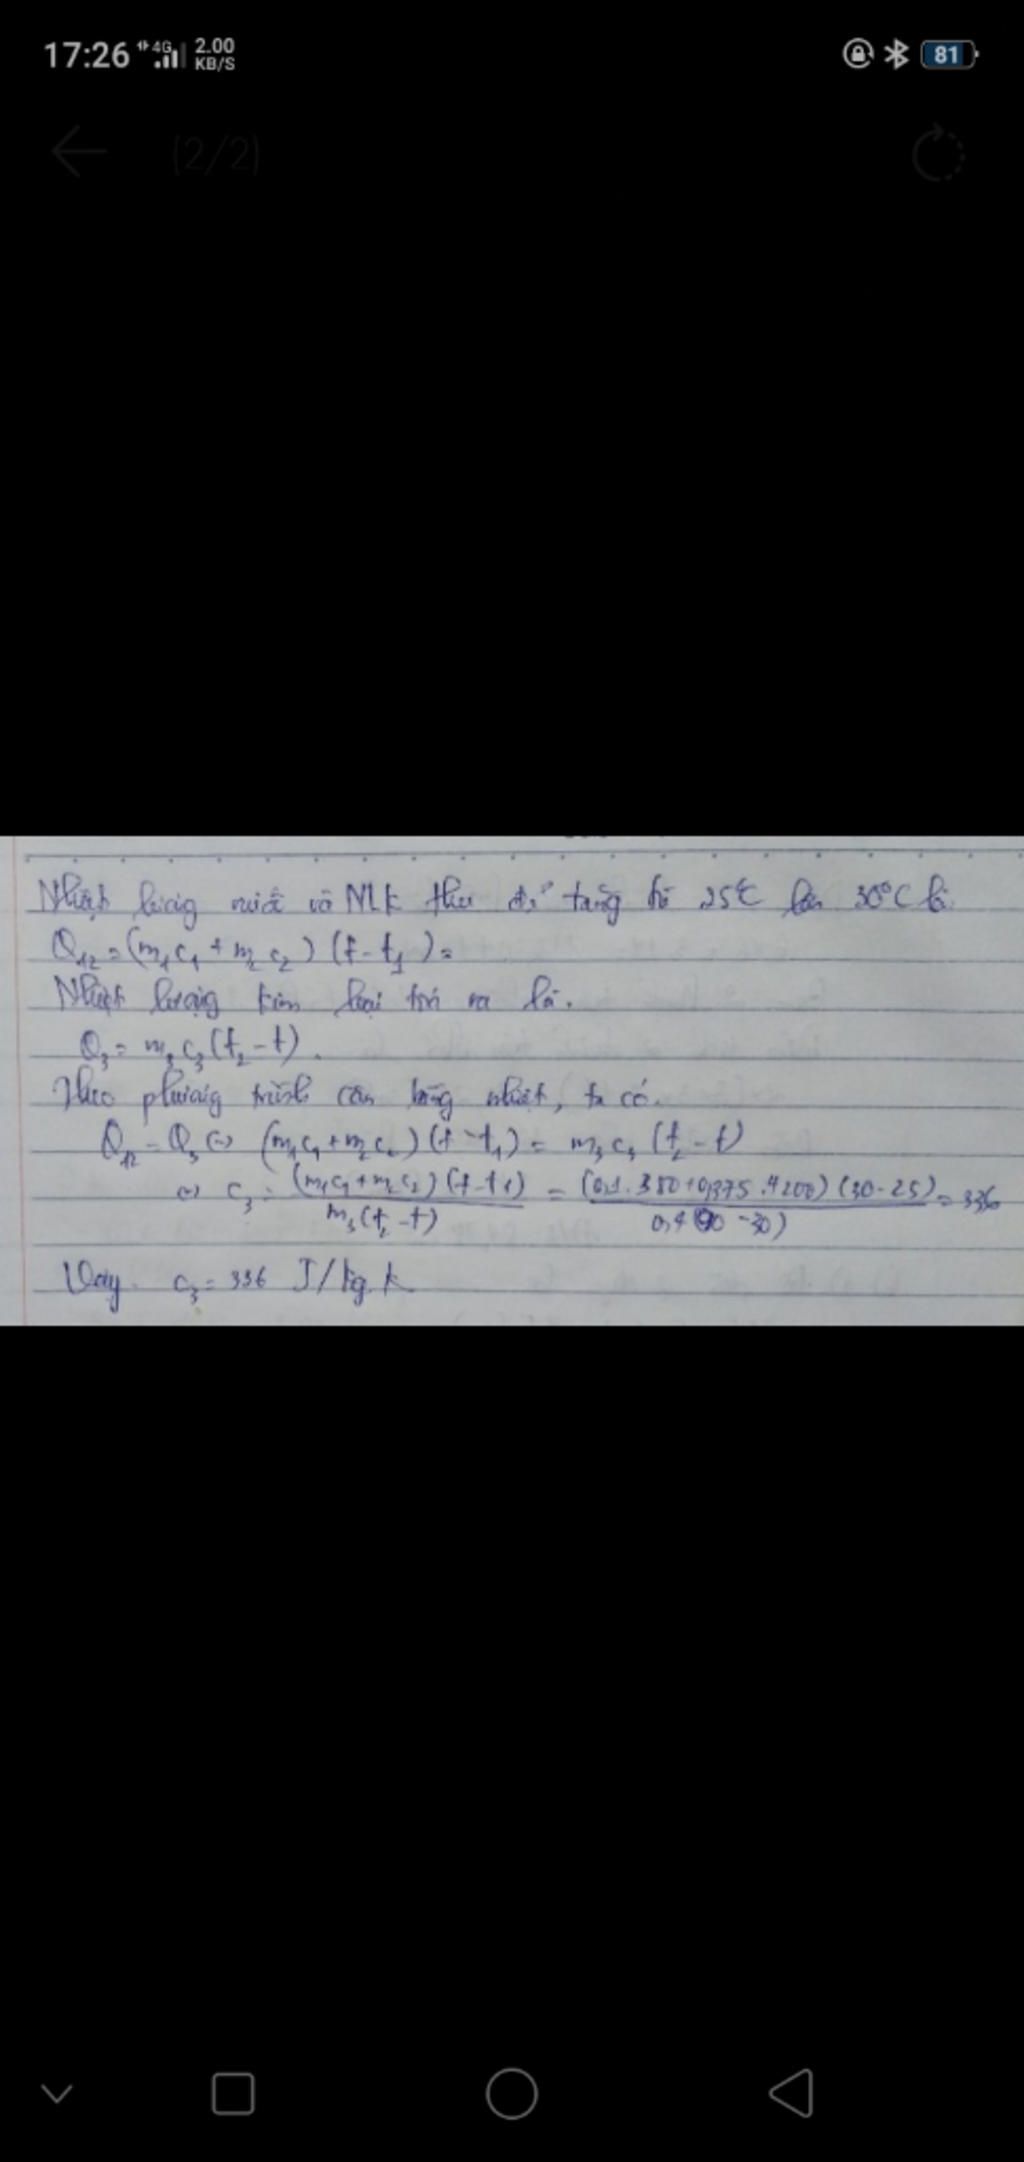 17:26 4G 2.00 KB/S 81
(2/2)
Nhiệt lượng nước và NLK thu để tăng từ 25°C lên 30°C là
Q₁₂ = (m₁c₁ + m₂c₂) (t - t₁) =
Nhiệt lượng kim loại toả ra là.
Q₃ = m₃c₃(t₂ - t).
Theo phương trình cân bằng nhiệt, ta có.
Q₁₂ = Q₃ (=) (m₁c₁ + m₂c₂) (t - t₁) = m₃c₃ (t₂ - t)
(=) c₃ = (m₁c₁ + m₂c₂) (t - t₁) / m₃(t₂ - t) = (0,1.380 + 0,375.4200) (30 - 25) / 0,4(90 - 30) = 336
Vậy. c₃ = 336 J/kg.k